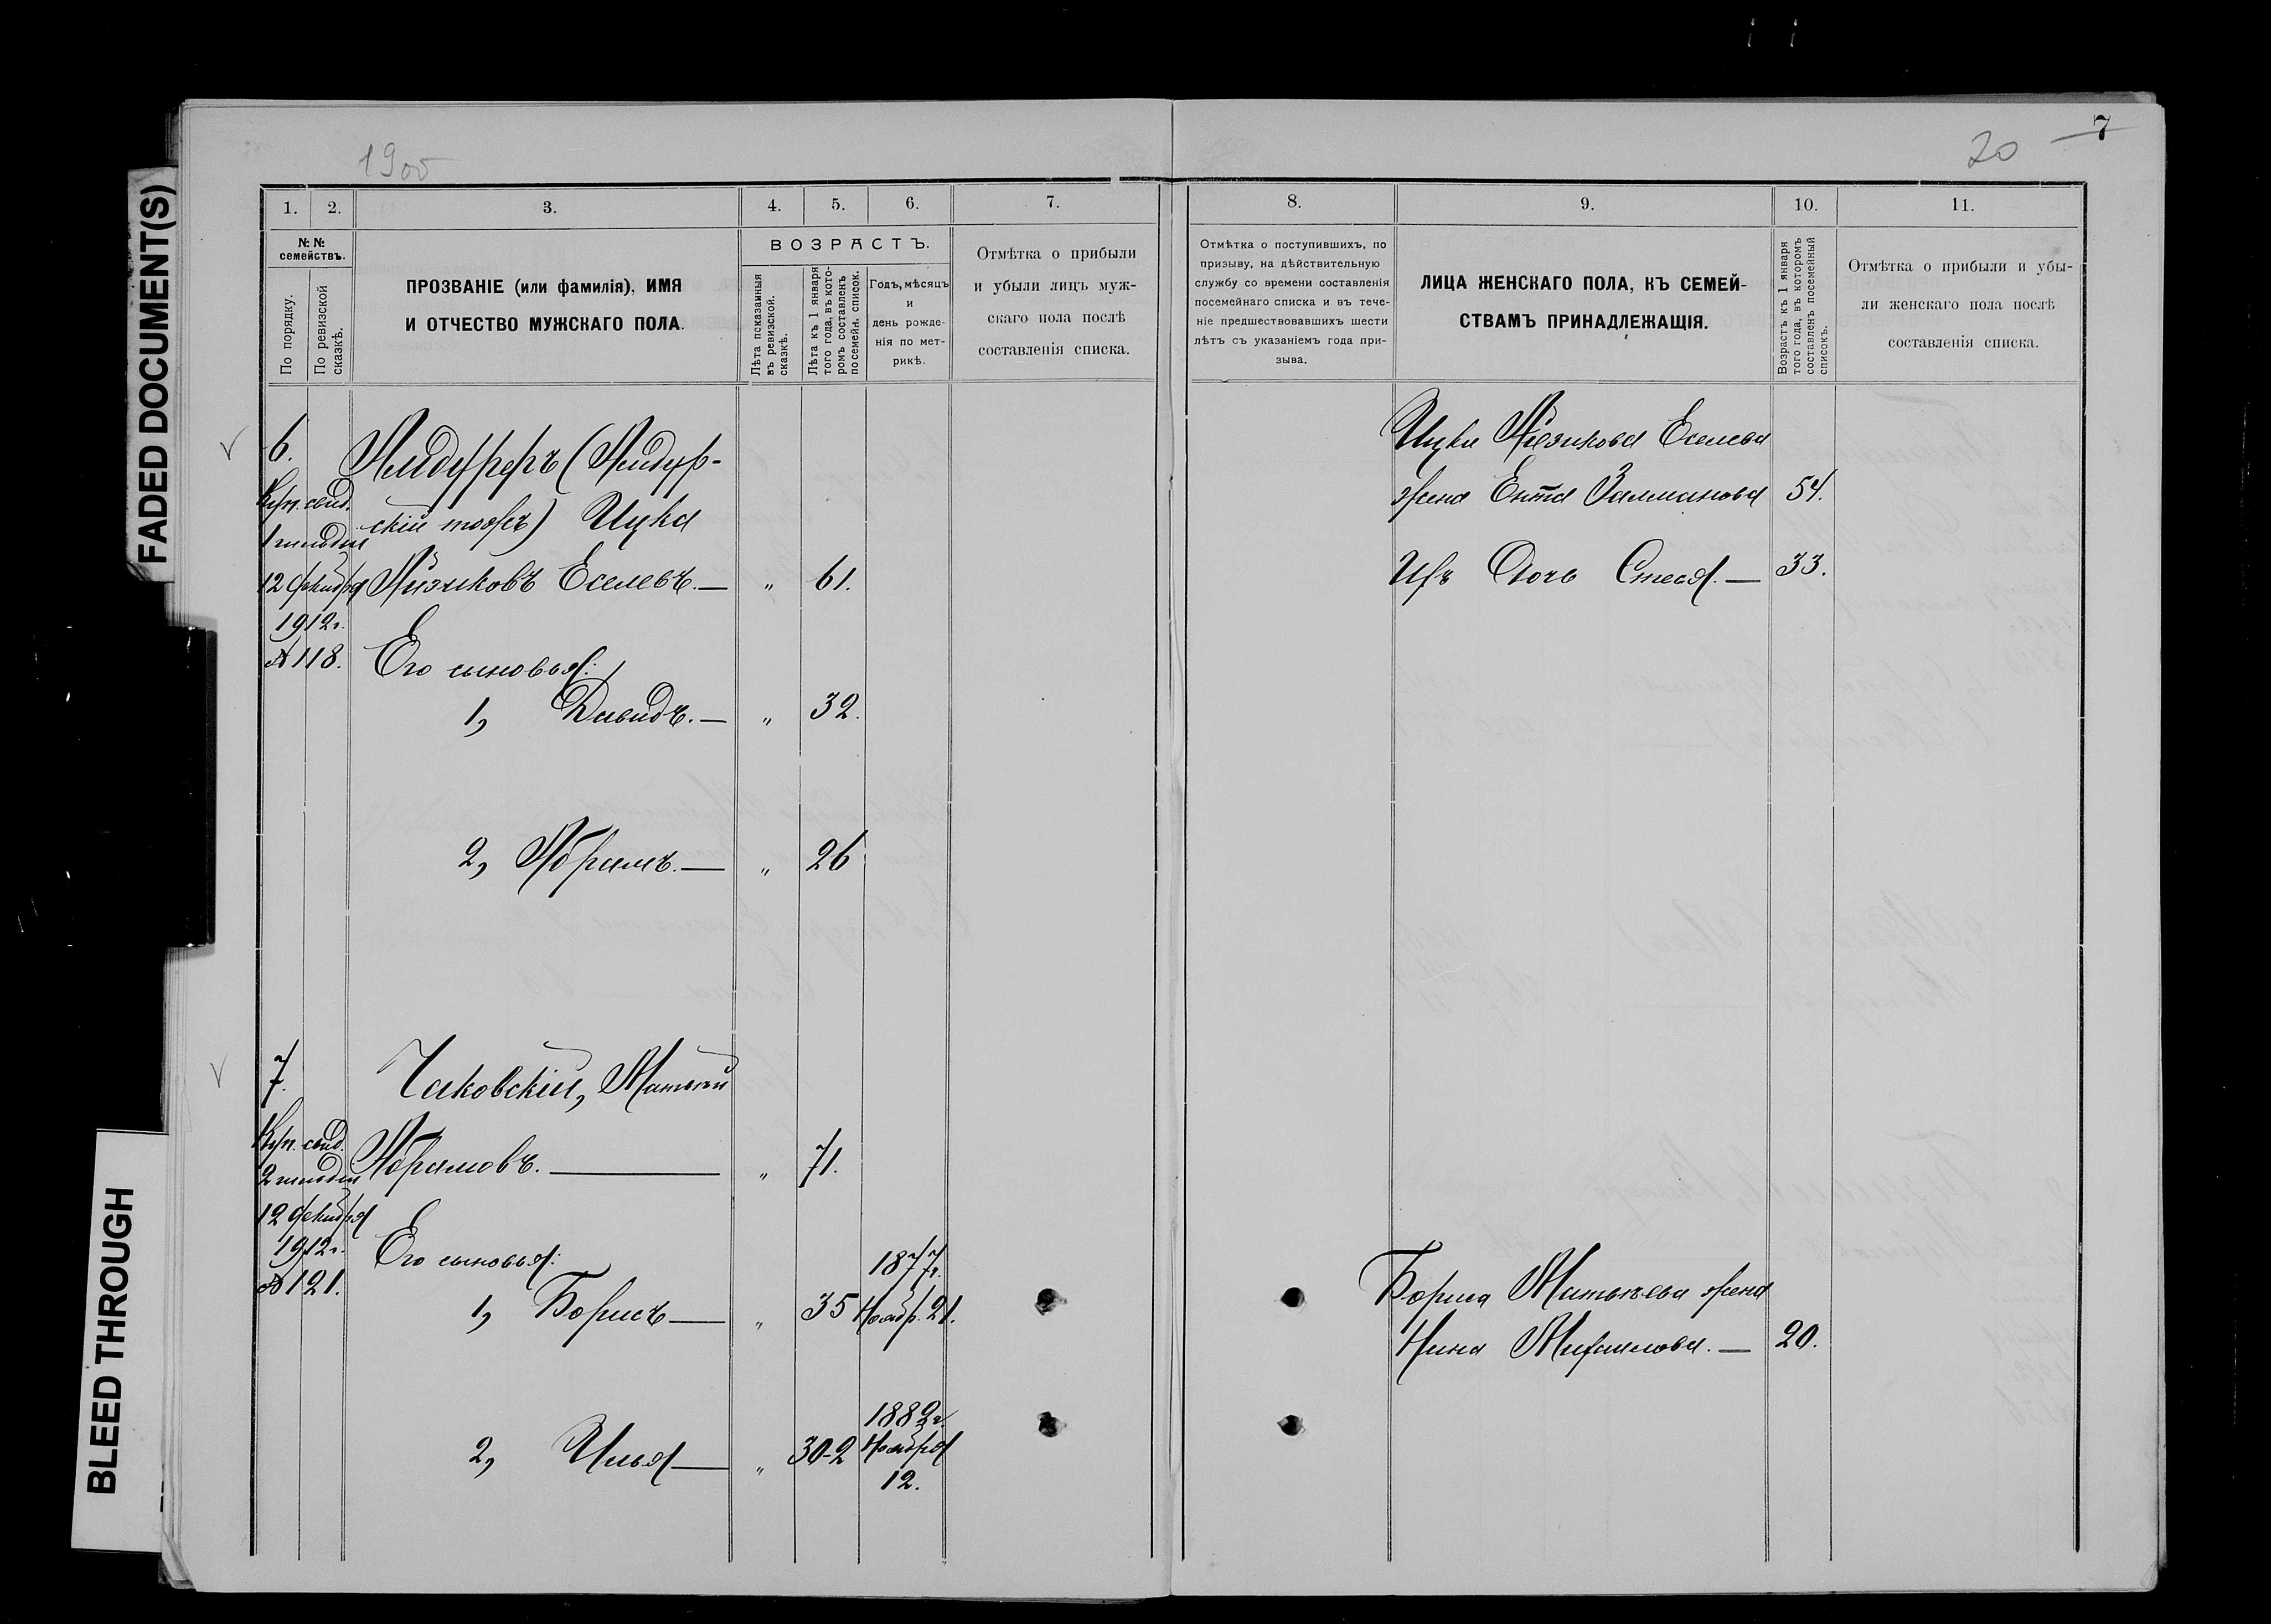 FADED DOCUMENT(S)
BLEED THROUGH
1900
20
7
1.
2.
3.
4.
5.
6.
7.
№ №
семействъ.
По порядку.
По ревизской
сказкѣ.
ПРОЗВАНІЕ (или фамилія), ИМЯ
И ОТЧЕСТВО МУЖСКАГО ПОЛА.
ВОЗРАСТЪ.
Лѣта показанныя
въ ревизской.
сказкѣ.
Лѣта къ 1 января
того года, въ кото-
ромъ составленъ
посемейн. список.
Годъ, мѣсяцъ
и
день рожде-
нія по мет-
рикѣ.
Отмѣтка о прибыли
и убыли лицъ муж-
скаго пола послѣ
составленія списка.
6.
Куп. свид.
1 гильдіи
12 декабря
1912 г.
№ 118.
(
скій тожъ) Ицка
Айзиковъ Еселевъ. — „ 61.
Его сыновья:
1, Давидъ. — „ 32.
2, Абрамъ. — „ 26
7.
Куп. свид.
2 гильдіи
12 декабря
1912 г.
№ 121.
Чаковскій, Матвѣй
Абрамовъ. — „ 71.
Его сыновья:
1, Борисъ — „ 35 1877 г.
Ноябр. 21.
2, Илья — „ 30-2 1882 г.
Ноября
12.
8.
9.
10.
11.
Отмѣтка о поступившихъ, по
призыву, на дѣйствительную
службу со времени составленія
посемейнаго списка и въ тече-
ніе предшествовавшихъ шести
лѣтъ съ указаніемъ года при-
зыва.
ЛИЦА ЖЕНСКАГО ПОЛА, КЪ СЕМЕЙ-
СТВАМЪ ПРИНАДЛЕЖАЩІЯ.
Возрастъ къ 1 января
того года, въ которомъ
составленъ посемейный
списокъ.
Отмѣтка о прибыли и убы-
ли женскаго пола послѣ
составленія списка.
Ицки Айзикова Еселева
жена Ента Залманова 54.
Ихъ дочь Стеся. — 33.
Бориса Матвѣева жена
Нина Михаилова. — 20.